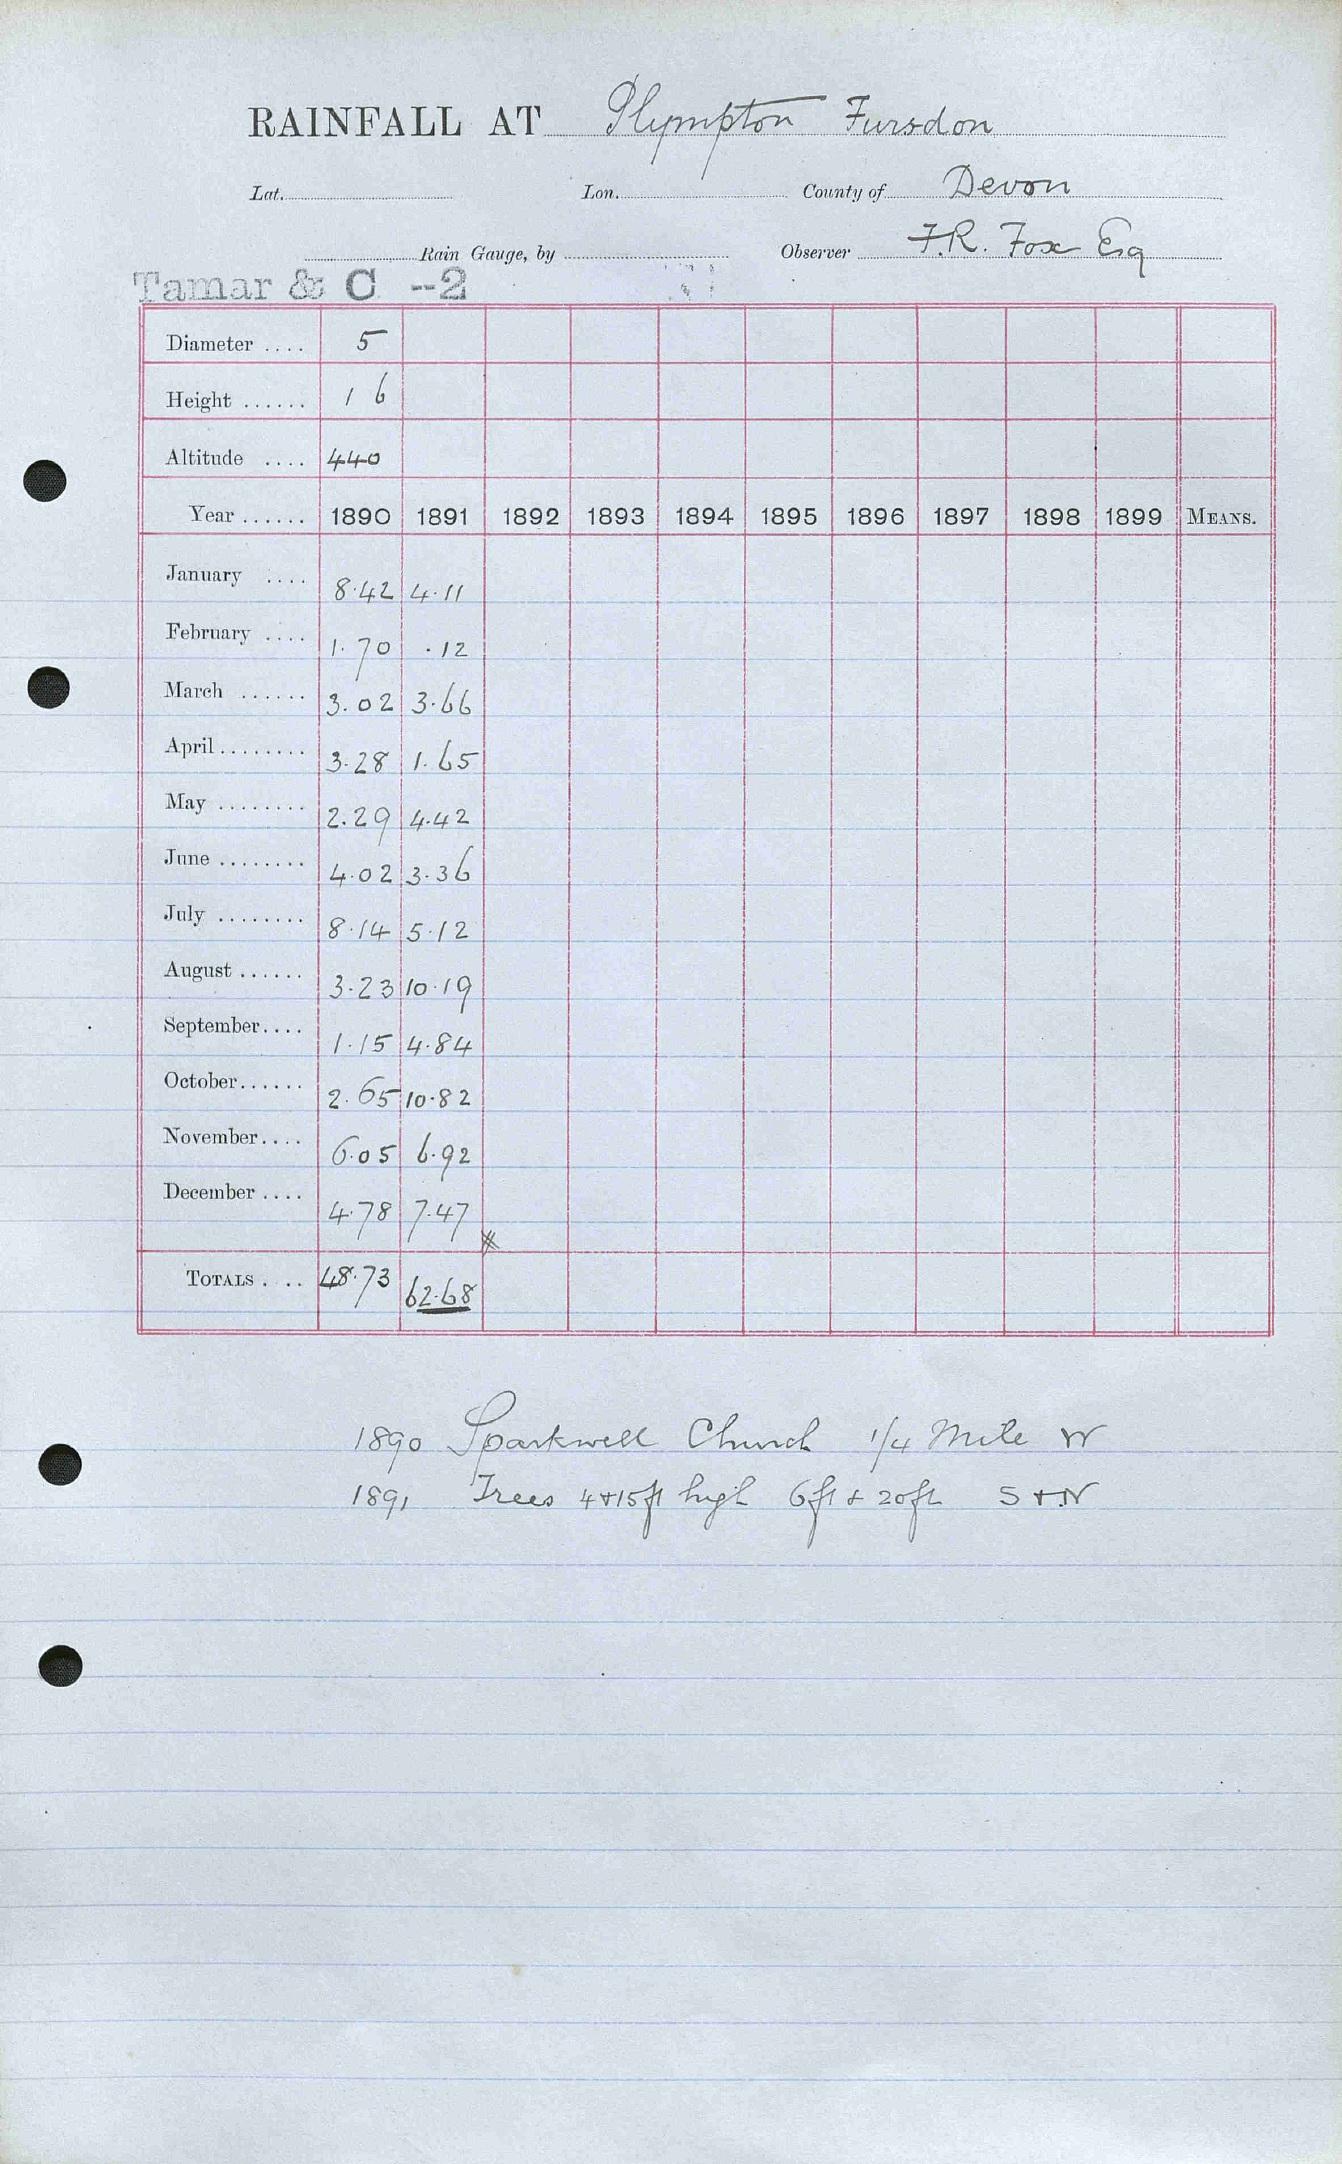 RAINFALL AT Plympton Fursdon
Lat. Lon. County of Devon
Rain Gauge, by Observer F.R. Fox Esq
Tamar & C --2
Diameter .... 5
Height ...... 1 6
Altitude .... 440
Year ...... 1890 1891 1892 1893 1894 1895 1896 1897 1898 1899 MEANS.
January .... 8.42 4.11
February .... 1.70 .12
March ...... 3.02 3.66
April ........ 3.28 1.65
May ........ 2.29 4.42
June ........ 4.02 3.36
July ........ 8.14 5.12
August ...... 3.23 10.19
September.... 1.15 4.84
October...... 2.65 10.82
November.... 6.05 6.92
December .... 4.78 7.47
TOTALS .... 48.73 62.68
1890 Sparkwell Church 1/4 Mile W
1891 Trees 4 & 15ft high 6ft & 20ft S & N